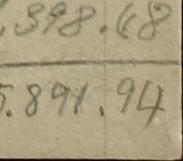 .398.68
5.891.94